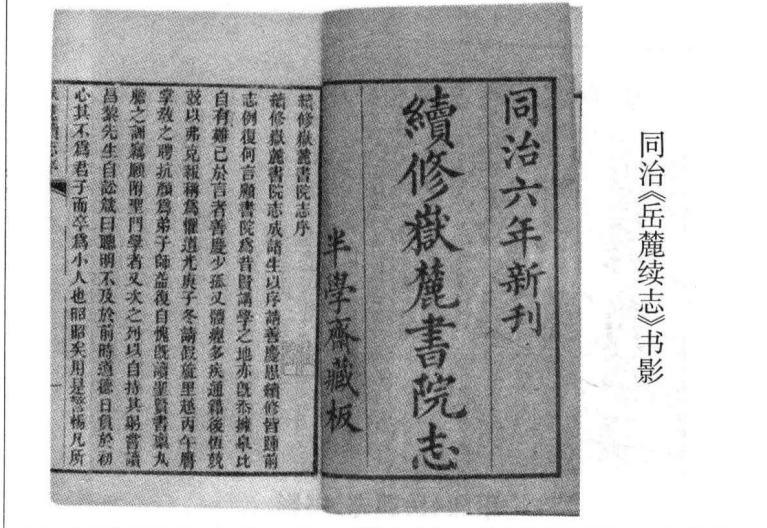 同治《岳麓续志》书影
同治六年新刊
續修嶽麓書院志
半學齋藏板
續修嶽麓書院志序
續修嶽麓書院志成諸生以序請善慶思續修皆踵前
志例復何言顧書院爲昔賢講學之地亦旣忝擁皋比
自有難已於言者善慶少孤又體癯多疾通籍後恆兢
兢以弗克報稱爲懼道光庚子冬請假旋里越丙午膺
掌教之聘抗顏爲弟子師益復自愧旣讀聖賢書稟九
應之訓竊願附聖門學者又次之列以自持其躬嘗讀
昌黎先生自訟箴曰聰明不及於前時道德日負於初
心其不爲君子而卒爲小人也昭昭矣用是警惕凡所